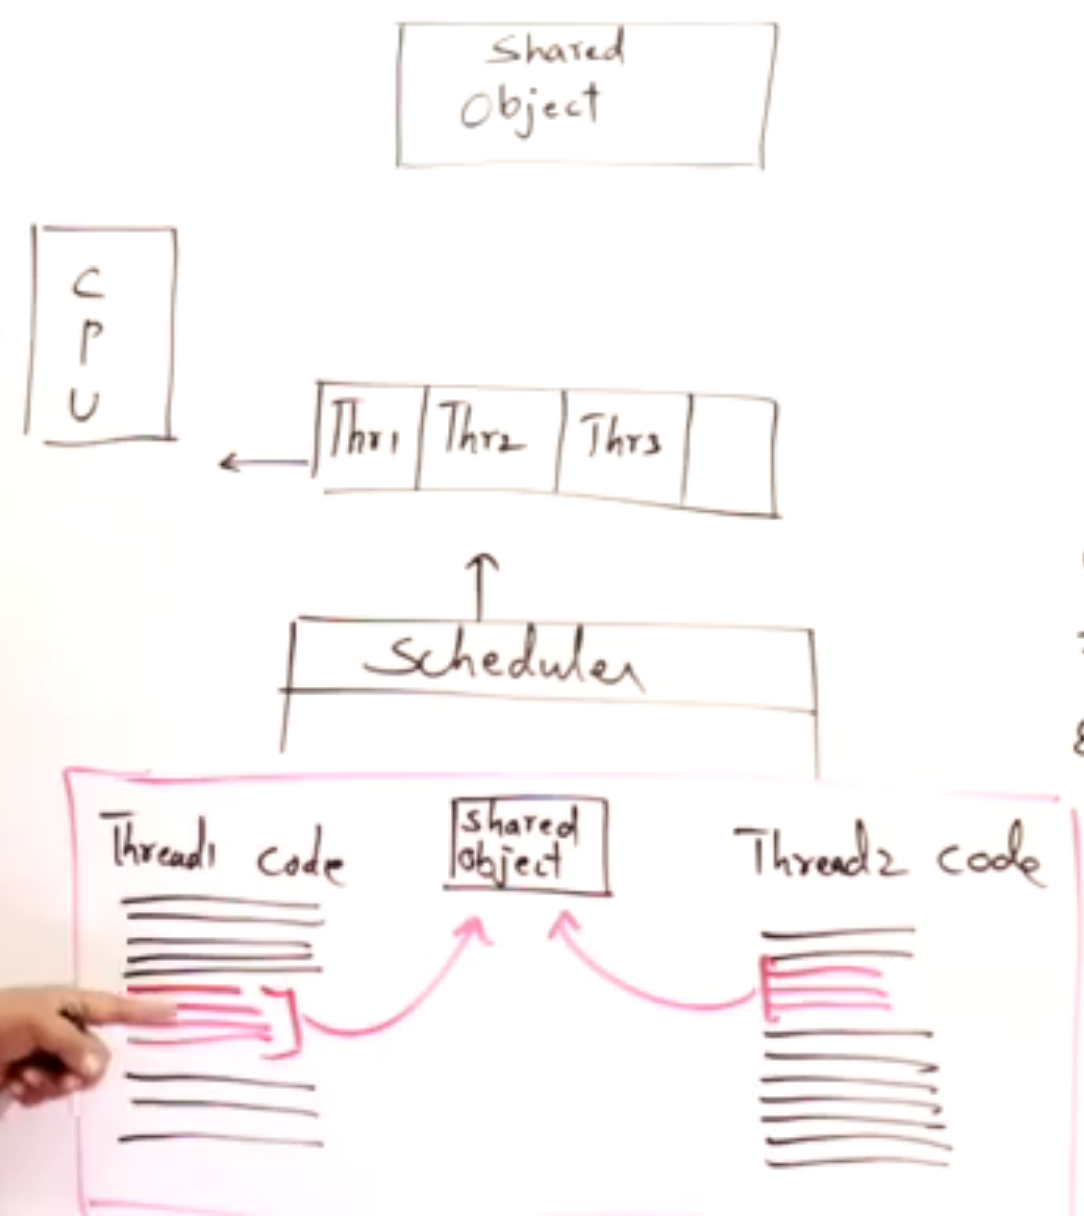 Shared
Object
C
P
U
Thr1 Thr2 Thr3
Scheduler
Thread1 Code
Shared
Object
Thread2 Code